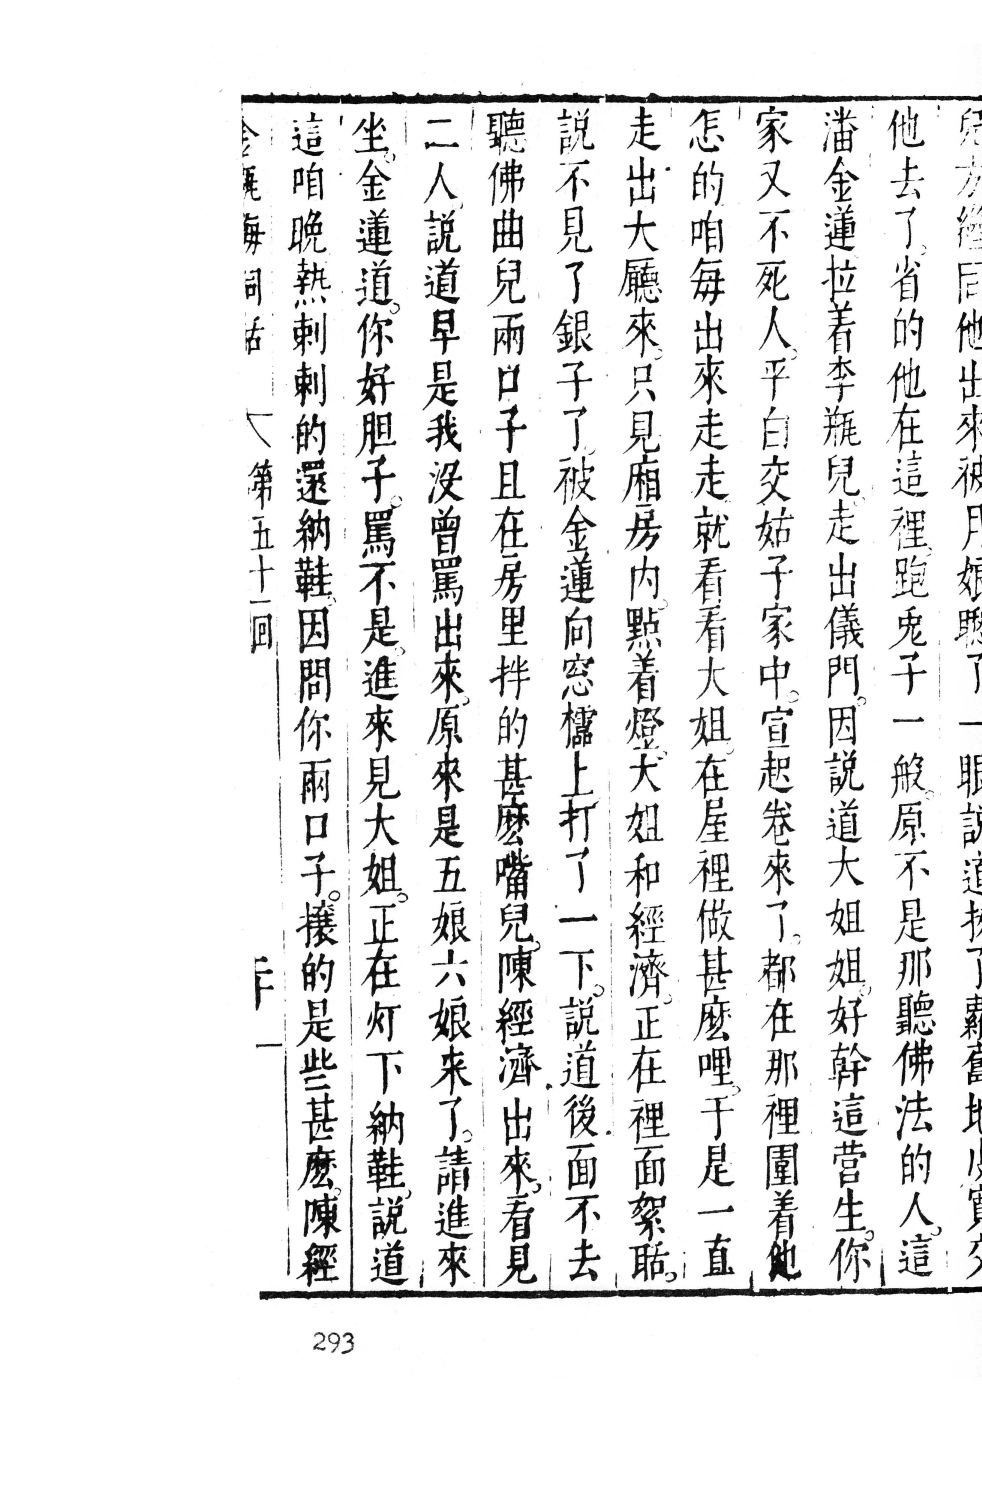 兒方纔同他出來被月娘瞅了一眼說道拔了蘿蔔地皮寬交
他去了。省的他在這裡。跑兎子一般。原不是那聽佛法的人。這
潘金蓮拉着李瓶兒。走出儀門。因説道大姐姐。好幹這营生。你
家又不死人。平白交姑子家中。宣起卷來了。都在那裡圍着他
怎的咱每出來走走。就看看大姐。在屋裡做甚麽哩。于是一直
走出大廳來。只見廂房内。點着燈。大姐和經濟。正在裡面絮聒。
説不見了銀子了。被金蓮向窓櫺上打了一下。説道後面不去
聽佛曲兒兩口子且在房里拌的甚麽嘴兒。陳經濟出來。看見
二人。説道早是我没曾罵出來。原來是五娘六娘来了。請進來
坐。金蓮道。你好胆子。罵不是。進來見大姐。正在灯下納鞋。説道
這咱晚熱剌剌的還納鞋。因問你兩口子。攘的是些甚麽。陳經
金瓶梅詞話 第五十一回 二十一
293